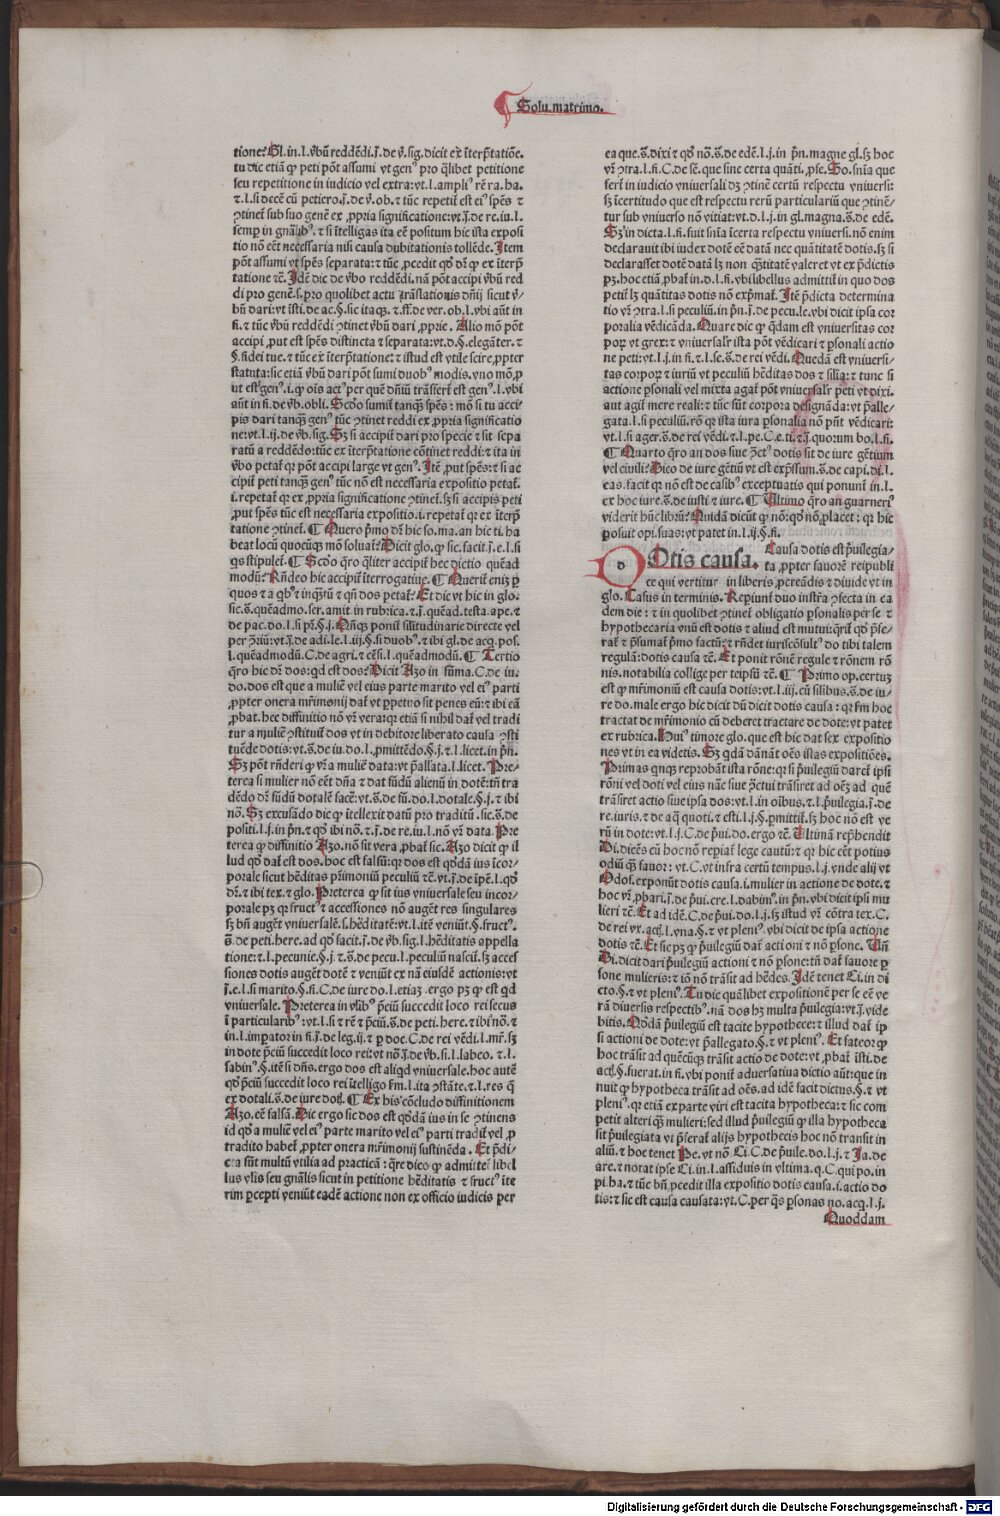 Solu. matrimo.
tione? Gl. in. l. v̄bū reddēdi. j̄. de v̄. sig. dicit ex̄ īterp̄tatiōe.
tu dic etiā ꝙ peti pōt assumi vt genꝰ pro q̄libet petitione
seu repetitione in iudicio vel extra: vt. l. ampliꝰ rē ra. ha.
⁊ .l. si decē cū petiero. j̄. de v̄. ob. ⁊ tūc repetit̄ est eiꝰ spēs ⁊
ꝯtinet̄ sub suo genē ex ꝓpria significatione: vt. j̄. de re. iu. l.
semp̄ in gn̄alibꝰ. ⁊ si ītelligas ita eē positum hic ista exposi
tio nō eēt necessaria nisi causa dubitationis tollēde. Item
pōt assumi vt spēs separata: ⁊ tūc ꝓcedit qď dr̄ ꝙ ex īterp̄
tatione ⁊c̄. Idē dic de v̄bo reddēdi. nā pōt accipi v̄bū red
di pro genē. s. pro quolibet actu trāslationis dn̄ij sicut v̄-
bū dari: vt īsti. de ac. §. sic itaqꝫ. ⁊ .ff. de ver. ob. l. vbi aūt in
fi. ⁊ tūc v̄bū reddēdi ꝯtinet v̄bū dari ꝓprie. Alio mō pōt
accipi ꝓut est spēs distincta ⁊ separata: vt. d. §. elegāter. ⁊
§. fidei tue. ⁊ tūc ex īterp̄tatione: ⁊ istud est vtile scire ꝓpter
statuta: sic etiā v̄bū dari pōt sumi duobꝰ modis. vno mō ꝓ
ut est genꝰ. i. ꝙ oīs actꝰ per quē dn̄iū trāsfert̄ est genꝰ. l. vbi
aūt in fi. de v̄b. obli. Scďo sumit̄ tanqꝫ spēs: mō si tu acci
pis dari tanqꝫ genꝰ tūc ꝯtinet reddi ex ꝓpria significatio
ne: vt. l. ij. de v̄b. sig. Sꝫ si accipit̄ dari pro specie ⁊ sit sepa
ratū a reddēdo: tūc ex īterp̄tatione cōtinet reddi: ⁊ ita in
v̄bo petat̄ qꝛ pōt accipi large vt genꝰ. Itē ꝓut spēs: ⁊ si ac
cipit̄ peti tanqꝫ genꝰ tūc nō est necessaria expositio petat̄.
i. repetat̄ qꝛ ex ꝓpria significatione ꝯtinet̄. sꝫ si accipis peti
ꝓut spēs tūc est necessaria expositio. i. repetat̄ qꝛ ex īterp̄
tatione ꝯtinet̄. ¶ Quero p̄mo dr̄ hic so. ma. an hic ti. ha
beat locū quocūqꝫ mō soluat̄? Dicit glo. ꝙ sic. facit. j̄. e. l. si
qs stipulet̄. ¶ Scďo q̄ro q̄liter accipit̄ hec dictio quēad
modū? Rn̄deo hic accipit̄ īterrogatiue. ¶ Querit̄ enīꝫ ꝑ
quos ⁊ a qbꝰ ⁊ inqstū ⁊ qn̄ dos petat̄? Et dic vt hic in glo.
sic. s̄. quēadmo. ser. amit. in rubrica. ⁊ .j̄. quēad. testa. ape. ⁊
de pac. do. l. si pr̄. §. j. Nūqꝫ ponit̄ silitudinarie directe vel
per ꝯriū: vt. j̄. de adi. le. l. iij. §. si duobꝰ. ⁊ ibi gl. de acq. pos.
l. quēadmodū. C. de agri. ⁊ cēsi. l. quēadmodū. ¶ Tertio
q̄ro hic dr̄ dos: qd est dos? Dicit Azo in sūma. C. de iu.
do. dos est que a muliē vel eius parte marito vel eiꝰ parti
ꝓpter onera mr̄imonij dat̄ vt ꝑpetuo sit penes eū: ⁊ ibi eā
ꝓbat. hec diffinitio nō vr̄ vera: qꝛ etiā si nihil dat̄ vel tradi
tur a muliē ꝯstituit̄ dos vt in debitore liberato causa ꝯsti
tuēde dotis: vt. s̄. de iu. do. l. ꝓmittēdo. §. j. ⁊ .l. licet. in p̄n.
Sꝫ pōt rn̄deri ꝙ v̄ra a muliē data: vt p̄allata. l. licet. Pre-
terea si mulier nō eēt dn̄a ⁊ dat fūdū alienū in dotē: tn̄ tra
dēdo dr̄ fūdū dotalē facē: vt. s̄. de fū. do. l. dotale. §. j. ⁊ ibi
nō. Sꝫ excusādo dic ꝙ ītellexit datū pro traditū. sic. s̄. de
positi. l. j. in p̄n. ⁊ qď ibi nō. ⁊ .j̄. de re. iu. l. nō vr̄ data. Pre
terea ꝙ diffinitio Azo. nō sit vera ꝓbat̄ sic. Azo dicit ꝙ il
lud qď dat̄ est dos. hoc est falsū: qꝛ dos est qďdā ius īcor-
porale sicut hēditas p̄rimoniū peculiū ⁊c̄. vt. j̄. de īpē. l. qď
dr̄. ⁊ ibi tex. ⁊ glo. Preterea ꝙ sit ius vniuersale seu incor-
porale pꝫ qꝛ fructꝰ ⁊ accessiones nō augēt res singulares
sꝫ bn̄ augēt vniuersalē. s. hēditatē: vt. l. itē veniūt. §. fructꝰ.
s̄. de peti. here. ad qď facit. j̄. de v̄b. sig. l. hēditatis appella
tione: ⁊ .l. pecunie. §. j. ⁊ .s̄. de pecu. l. peculiū nascit̄. sꝫ acces
siones dotis augēt dotē ⁊ veniūt ex nā eiusdē actionis: vt
j̄. e. l. si marito. §. fi. C. de iure do. l. etiaꝫ. ergo pꝫ ꝙ est qd
vniuersale. Preterea in vl̄ibꝰ p̄ciū succedit loco rei secus
ī particularibꝰ: vt. l. si ⁊ rē ⁊ p̄ciū. s̄. de peti. here. ⁊ ibi nō. ⁊
in. l. imp̄ator in fi. j̄. de leg. ij. ⁊ ꝑ doc. C. de rei vēdi. l. mr̄. sꝫ
in dote p̄ciū succedit loco rei: vt nō. j̄. de v̄b. si. l. labeo. ⁊ .l.
sabinꝰ. §. itē si dn̄s. ergo dos est aliqd vniuersale. hoc autē
qď p̄ciū succedit loco rei ītelligo fm̄. l. ita ꝯstāte. ⁊ .l. res q̄
ex dotali. s̄. de iure doꝫ. ¶ Ex his cōcludo diffinitionem
Azo. eē falsā. Dic ergo sic dos est qďdā ius in se ꝯtinens
id qď a muliē vel eiꝰ parte marito vel eiꝰ parti tradit̄ vel ꝓ
tradito habet̄ ꝓpter onera mr̄imonij sustinēda. Et p̄di-
cta sūt multū vtilia ad practicā: qr̄e dico ꝙ admittet̄ libel
lus v̄lis seu gn̄alis sicut in petitione hēditatis ⁊ fructꝰ īte
rim p̄cepti veniūt eadē actione non ex officio iudicis per
ea que. s̄. dixi ⁊ qď nō. s̄. de edē. l. j. in p̄n. magne gl. sꝫ hoc
vr̄ ꝯtra. l. fi. C. de sē. que sine certa quāti. ꝓfe. So. sn̄ia que
fert̄ in iudicio vniuersali dꝫ ꝯtinē certū respectu vniuersi:
sꝫ īcertitudo que est respectu rerū particulariū que ꝯtinē-
tur sub vniuerso nō vitiat: vt. d. l. j. in gl. magna. s̄. de edē.
Sꝫ in dicta. l. fi. fuit sn̄ia īcerta respectu vniuersi. nō enim
declarauit ibi iudex dotē eē datā nec quātitatē dotis. sꝫ si
declarasset dotē datā lꝫ non q̄titatē valeret vt ex p̄dictis
pꝫ. hoc etiā ꝓbat̄ in. d. l. fi. vbi libellus admittit̄ in quo dos
petit̄ lꝫ quātitas dotis nō exp̄mat̄. Itē p̄dicta determina
tio vr̄ ꝯtra. l. si peculiū. in p̄n. j̄. de pecu. le. vbi dicit ipsa cor
poralia vēdicāda. Quare dic ꝙ q̄dam est vniuersitas cor
poꝝ vt grex: ⁊ vniuersalr̄ ista pōt vēdicari ⁊ ꝑsonali actio
ne peti: vt. l. j. in fi. ⁊ .l. sc. s̄. de rei vēdi. Quedā est vniuersi-
tas corpoꝝ ⁊ iuriū vt peculiū hēditas dos ⁊ silia: ⁊ tunc si
actione ꝑsonali vel mixta agat̄ pōt vniuersalr̄ peti vt dixi.
aut agit̄ mere reali: ⁊ tūc sūt corpora designāda: vt p̄alle-
gata. l. si peculiū. rō qꝛ ista iura ꝑsonalia nō pn̄t vēdicari:
vt. l. si ager. s̄. de rei vēdi. ⁊ .l. pe. C. e. ti. ⁊ .j̄. quorum bo. l. fi.
¶ Quarto q̄ro an dos siue ꝓectꝰ dotis sit de iure gētium
vel ciuili? Dico de iure gētiū vt est exp̄ssum. s̄. de capi. di. l.
eas. facit qꝛ nō est de casibꝰ exceptuatis qui ponunt̄ in. l.
ex hoc iure. s̄. de iusti. ⁊ iure. ¶ Ultimo q̄ro an guarneriꝰ
viderit hūc librū? Quidā dicūt ꝙ nō: qď nō ꝓlacet: qꝛ hic
posuit opi. suas: vt patet in. l. ij. §. fi.
d
Dtis causa. Causa dotis est p̄uilegia-
ta ꝓpter fauorē reipubli
ce qui vertitur in liberis ꝓcreādis ⁊ diuide vt in
glo. Casus in terminis. Repiunt̄ duo instr̄a ꝯfecta in ea
dem die: ⁊ in quolibet ꝯtinet̄ obligatio ꝑsonalis per se ⁊
hypothecaria vnū est dotis ⁊ aliud est mutui: q̄rit̄ qď p̄fe-
rat̄ ⁊ p̄sumat̄ p̄mo factū: ⁊ rn̄det iuriscōsultꝰ do tibi talem
regulā: dotis causa ⁊c̄. Et ponit rōnē regule ⁊ rōnem rō
nis. notabilia collige per teipsū ⁊c̄. ¶ Primo op. certuꝫ
est ꝙ mr̄imoniū est causa dotis: vt. l. iij. cū silibus. s̄. de iu-
re do. male ergo hic dicit dū dicit dotis causa: qꝛ fm̄ hoc
tractat de mr̄imonio cū deberet tractare de dote: vt patet
ex rubrica. Huiꝰ timore glo. que est hic dat sex expositio
nes vt in ea videtis. Sꝫ qdā dānāt oēs istas expositiōes.
Primas qnqꝫ reprobāt ista rōne: qꝛ si p̄uilegiū daret̄ ipsi
rōni vel doti vel eius nāe siue ꝓectui trāsiret ad oēꝫ ad quē
trāsiret actio siue ipsa dos: vt. l. in oībus. ⁊ .l. p̄uilegia. j̄. de
re. iuris. ⁊ de aq̄ quoti. ⁊ esti. l. j. §. ꝑmittit̄. sꝫ hoc nō est ve
rū in dote: vt. l. j. C. de p̄ui. do. ergo ⁊c̄. Ultimā rep̄hendit
Di. dicēs cū hoc nō repiat̄ lege cautū: ⁊ qꝛ hic eēt potius
odiū q̄ꝫ fauor: vt. C. vt infra certū tempus. l. j. vnde alij vt
Odof. exponūt dotis causa. i. mulier in actione de dote. ⁊
hoc vr̄ ꝓbari. j̄. de p̄ui. cre. l. dabimꝰ. in p̄n. vbi dicit ipsi mu
lieri ⁊c̄. Et ad idē. C. de p̄ui. do. l. j. sꝫ istud vr̄ cōtra tex. C.
de rei vx. acꝫ. l. vna. §. ⁊ vt pleniꝰ. vbi dicit de ipsa actione
dotis ⁊c̄. Et sic pꝫ ꝙ p̄uilegiū dat̄ actioni ⁊ nō ꝑsone. Un̄
Di. dicit dari p̄uilegiū actioni ⁊ nō ꝑsone: tn̄ dat̄ fauore ꝑ
sone mulieris: ⁊ iō nō trāsit ad hēdes. Idē tenet Ci. in di
cto. §. ⁊ vt pleniꝰ. Tu dic quālibet expositionē per se eē ve
rā diuersis respectibꝰ. nā dos hꝫ multa p̄uilegia: vt. j̄. vide
bitis. Nōdā p̄uilegiū est tacite hypothece: ⁊ illud dat̄ ip
si actioni de dote: vt p̄allegato. §. ⁊ vt pleniꝰ. Et fateor ꝙ
hoc trāsit ad quēcūqꝫ trāsit actio de dote: vt ꝓbat̄ īsti. de
acꝫ. §. fuerat. in fi. vbi ponit̄ aduersatiua dictio aūt: que in
nuit ꝙ hypotheca trāsit ad oēs. ad idē facit dictus. §. ⁊ vt
pleniꝰ. qꝛ etiā ex parte viri est tacita hypotheca: ⁊ sic com
petit alteri qꝫ mulieri: sed illud p̄uilegiū ꝙ illa hypotheca
sit p̄uilegiata vt p̄ferat̄ alijs hypothecis hoc nō transit in
aliū. ⁊ hoc tenet Pe. vt nō. Ci. C. de p̄uile. do. l. j. ⁊ Ia. de
are. ⁊ notat ipse Ci. in. l. assiduis in vltima. q. C. qui po. in
pi. ha. ⁊ tūc bn̄ ꝓcedit illa expositio dotis causa. i. actio do
tis: ⁊ sic est causa causata: vt. C. per q̄s ꝑsonas no. acq. l. j.
Quoddam
Digitalisierung gefördert durch die Deutsche Forschungsgemeinschaft - DFG